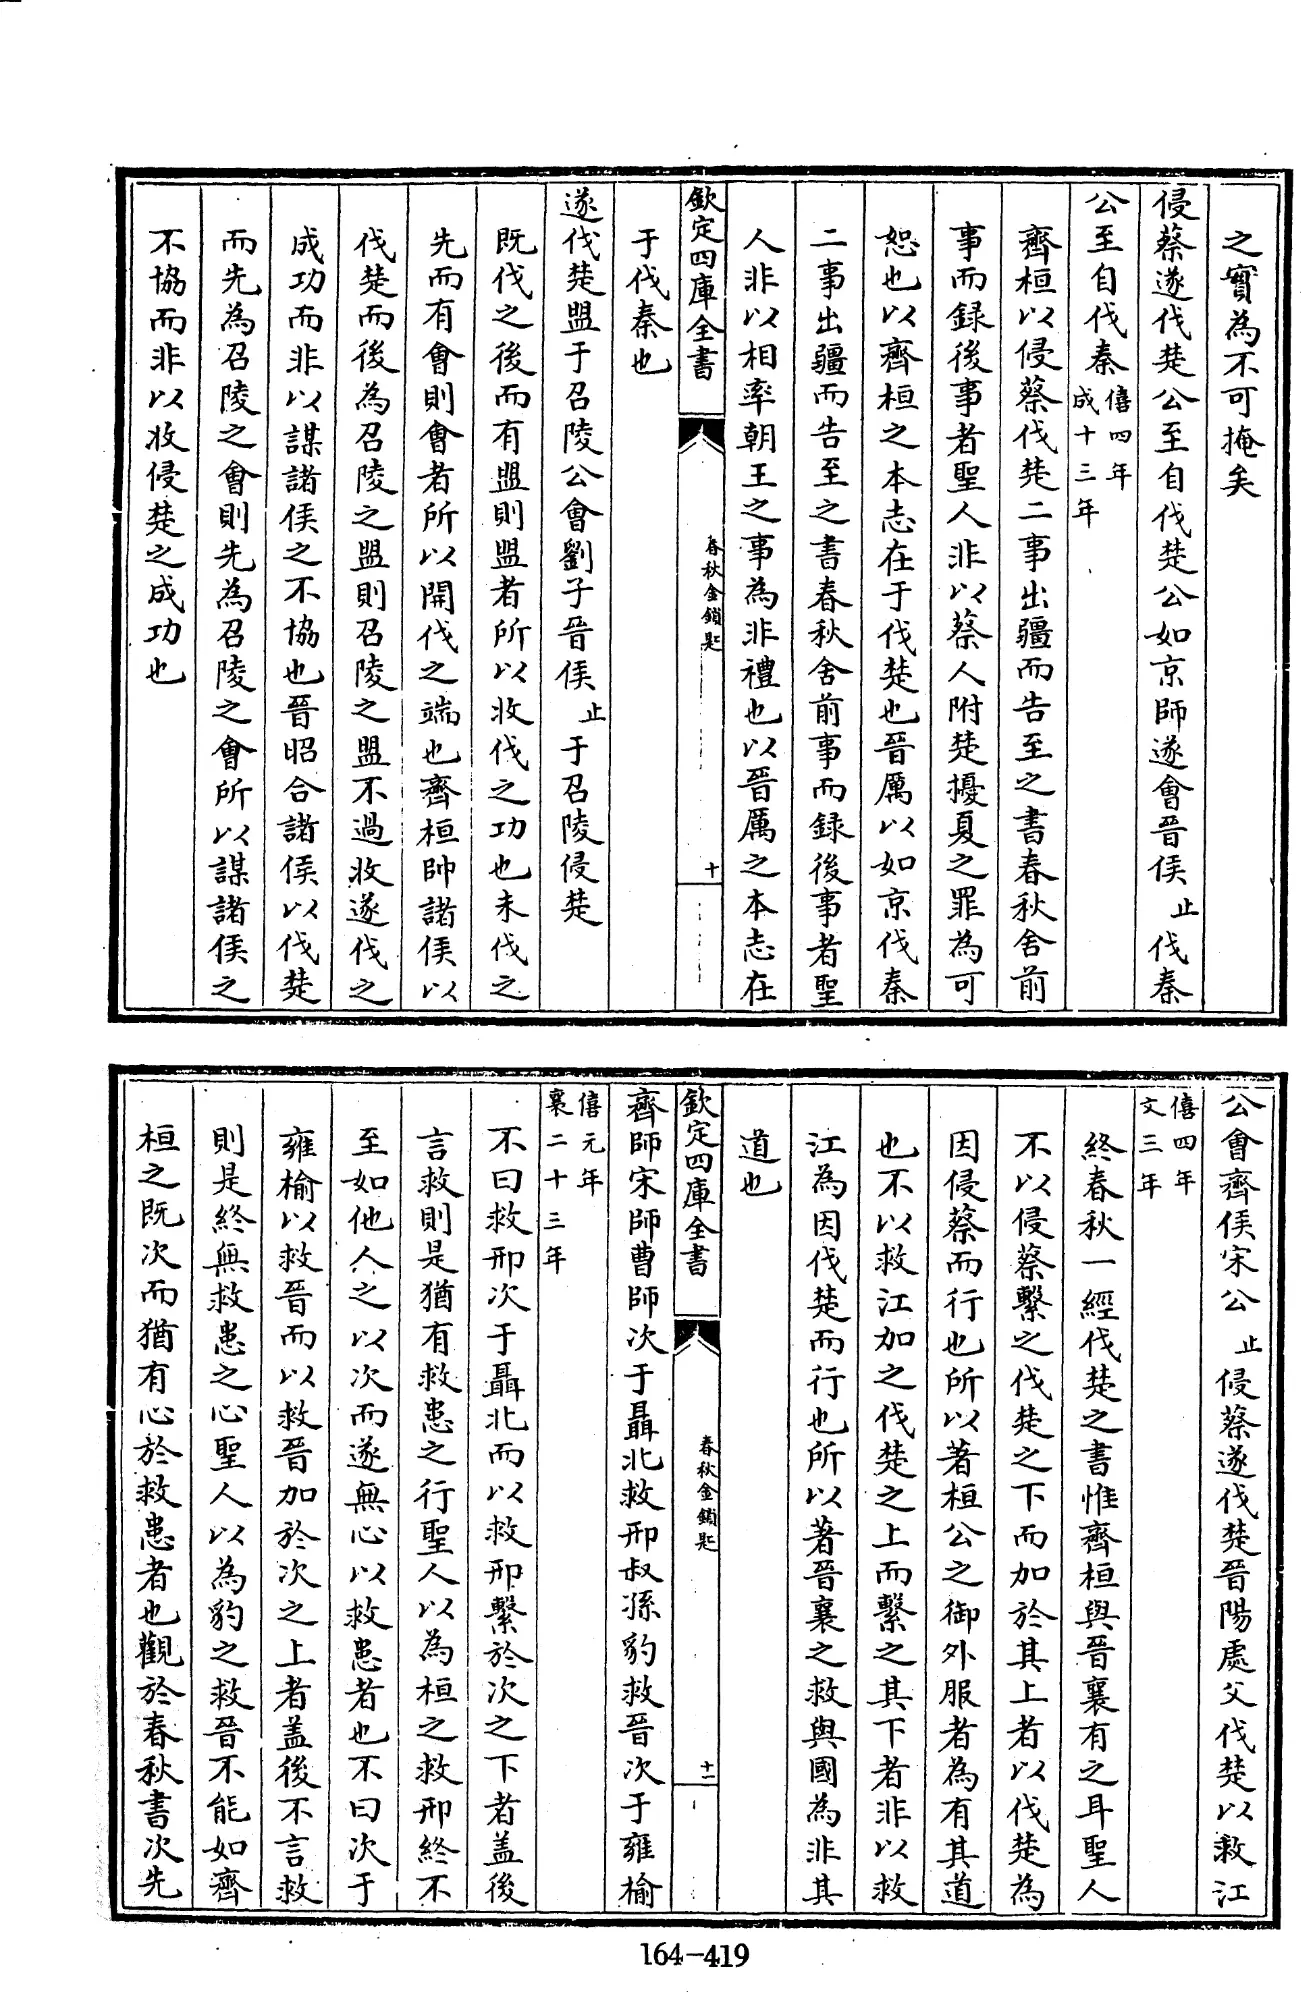 之實為不可掩矣
侵蔡遂伐楚公至自伐楚公如京師遂會晉侯止伐秦
公至自伐秦僖四年成十三年
齊桓以侵蔡伐楚二事出疆而告至之書春秋舍前
事而録後事者聖人非以蔡人附楚擾夏之罪為可
恕也以齊桓之本志在于伐楚也晉厲以如京伐秦
二事出疆而告至之書春秋舍前事而録後事者聖
人非以相率朝王之事為非禮也以晉厲之本志在
欽定四庫全書 春秋金鎖匙 十
于伐秦也
遂伐楚盟于召陵公會劉子晉侯止于召陵侵楚
既伐之後而有盟則盟者所以收伐之功也未伐之
先而有會則會者所以開伐之端也齊桓帥諸侯以
伐楚而後為召陵之盟則召陵之盟不過收遂伐之
成功而非以謀諸侯之不協也晉昭合諸侯以伐楚
而先為召陵之會則先為召陵之會所以謀諸侯之
不協而非以收侵楚之成功也
公會齊侯宋公止侵蔡遂伐楚晉陽處父伐楚以救江
僖四年文三年
終春秋一經伐楚之書惟齊桓與晉襄有之耳聖人
不以侵蔡繫之伐楚之下而加於其上者以伐楚為
因侵蔡而行也所以著桓公之御外服者為有其道
也不以救江加之伐楚之上而繫之其下者非以救
江為因伐楚而行也所以著晉襄之救與國為非其
道也
欽定四庫全書 春秋金鎖匙 十一
齊師宋師曹師次于聶北救邢叔孫豹救晉次于雍榆
僖元年襄二十三年
不曰救邢次于聶北而以救邢繫於次之下者盖後
言救則是猶有救患之行聖人以為桓之救邢終不
至如他人之以次而遂無心以救患者也不曰次于
雍榆以救晉而以救晉加於次之上者盖後不言救
則是終無救患之心聖人以為豹之救晉不能如齊
桓之既次而猶有心於救患者也觀於春秋書次先
164-419